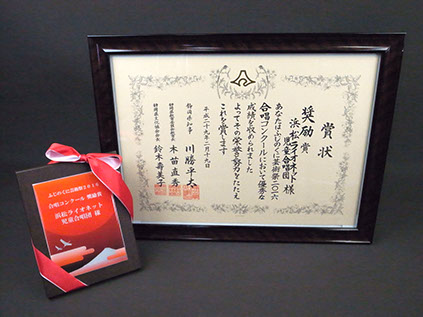 賞状
奨励賞
浜松ライオネット
児童合唱団 様
あなたはふじのくに芸術祭二〇一六
合唱コンクールにおいて優秀な
成績を収められました
よってその栄誉と努力をたたえ
これを賞します
平成二十九年二月十九日
静岡県知事 川勝平太
静岡県教育委員会教育長 木苗直秀
静岡県文化協会会長 鈴木壽美子
ふじのくに芸術祭2016
合唱コンクール 奨励賞
浜松ライオネット
児童合唱団 様